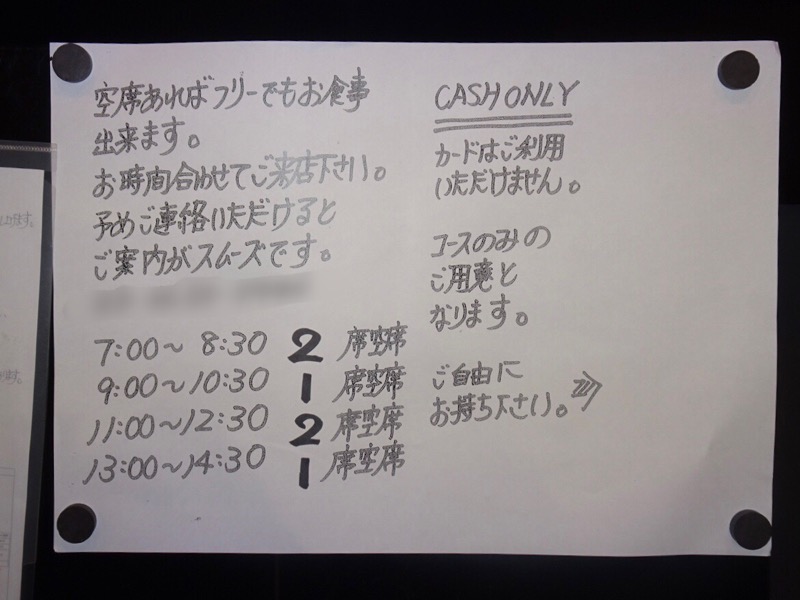 空席あればフリーでもお食事
出来ます。
お時間合わせてご来店下さい。
予めご連絡いただけると
ご案内がスムーズです。
7:00〜 8:30 2 席空席
9:00〜10:30 1 席空席
11:00〜12:30 2 席空席
13:00〜14:30 1 席空席
CASH ONLY
カードはご利用
いただけません。
コースのみの
ご用意と
なります。
ご自由に
お持ち下さい。